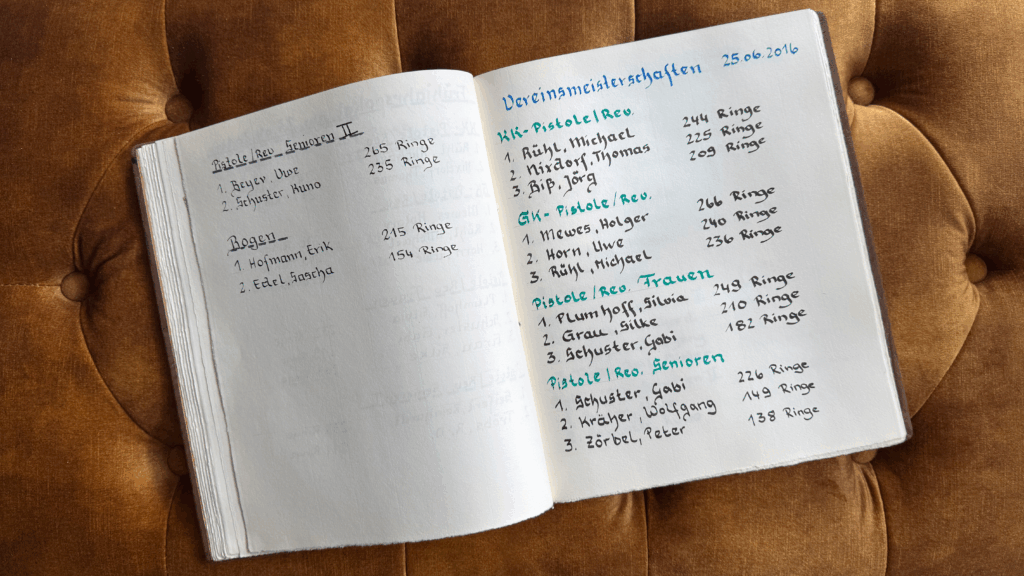 Pistole/Rev. Senioren II
1. Beyer, Uwe 265 Ringe
2. Schuster, Kuno 235 Ringe
Bogen
1. Hofmann, Erik 215 Ringe
2. Edel, Sascha 154 Ringe
Vereinsmeisterschaften 25.06.2016
KK-Pistole/Rev.
1. Rühl, Michael 244 Ringe
2. Nixdorf, Thomas 225 Ringe
3. Biß, Jörg 209 Ringe
GK-Pistole/Rev.
1. Mewes, Holger 266 Ringe
2. Horn, Uwe 240 Ringe
3. Rühl, Michael 236 Ringe
Pistole/Rev. Frauen
1. Plumhoff, Silvia 249 Ringe
2. Grau, Silke 210 Ringe
3. Schuster, Gabi 182 Ringe
Pistole/Rev. Senioren
1. Schuster, Gabi 226 Ringe
2. Kräher, Wolfgang 149 Ringe
3. Zörbel, Peter 138 Ringe